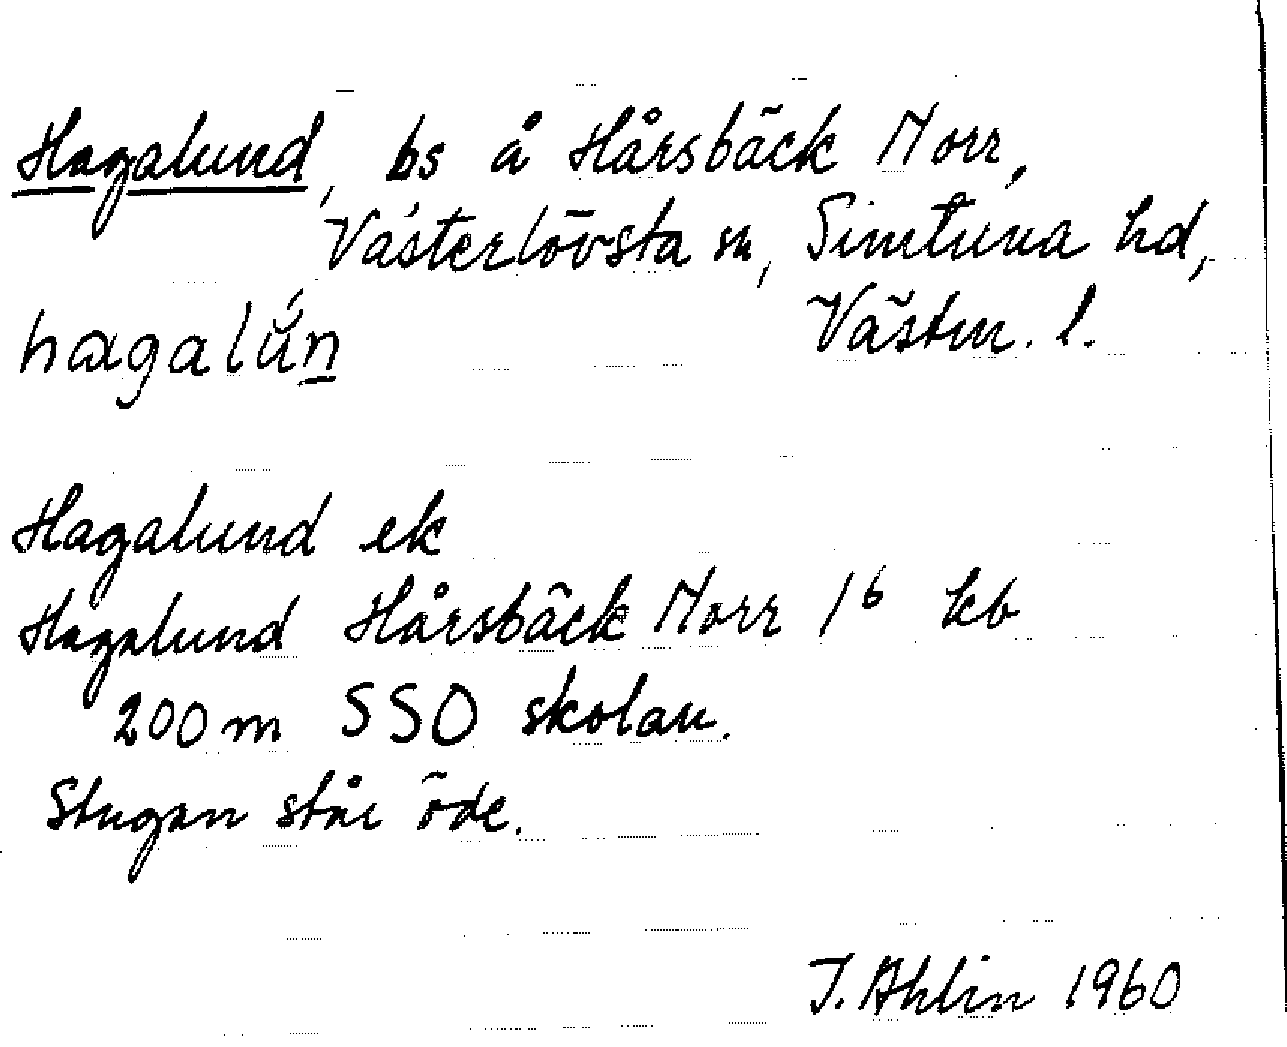 Hagalund, bs å Hårsbäck Norr,
Västerlövsta sn, Simtuna hd,
Västm. l.
hagalún̲
Hagalund ek
Hagalund Hårsbäck Norr 1⁶ kb
200 m SSO skolan.
Stugan står öde.
J. Ahlin 1960